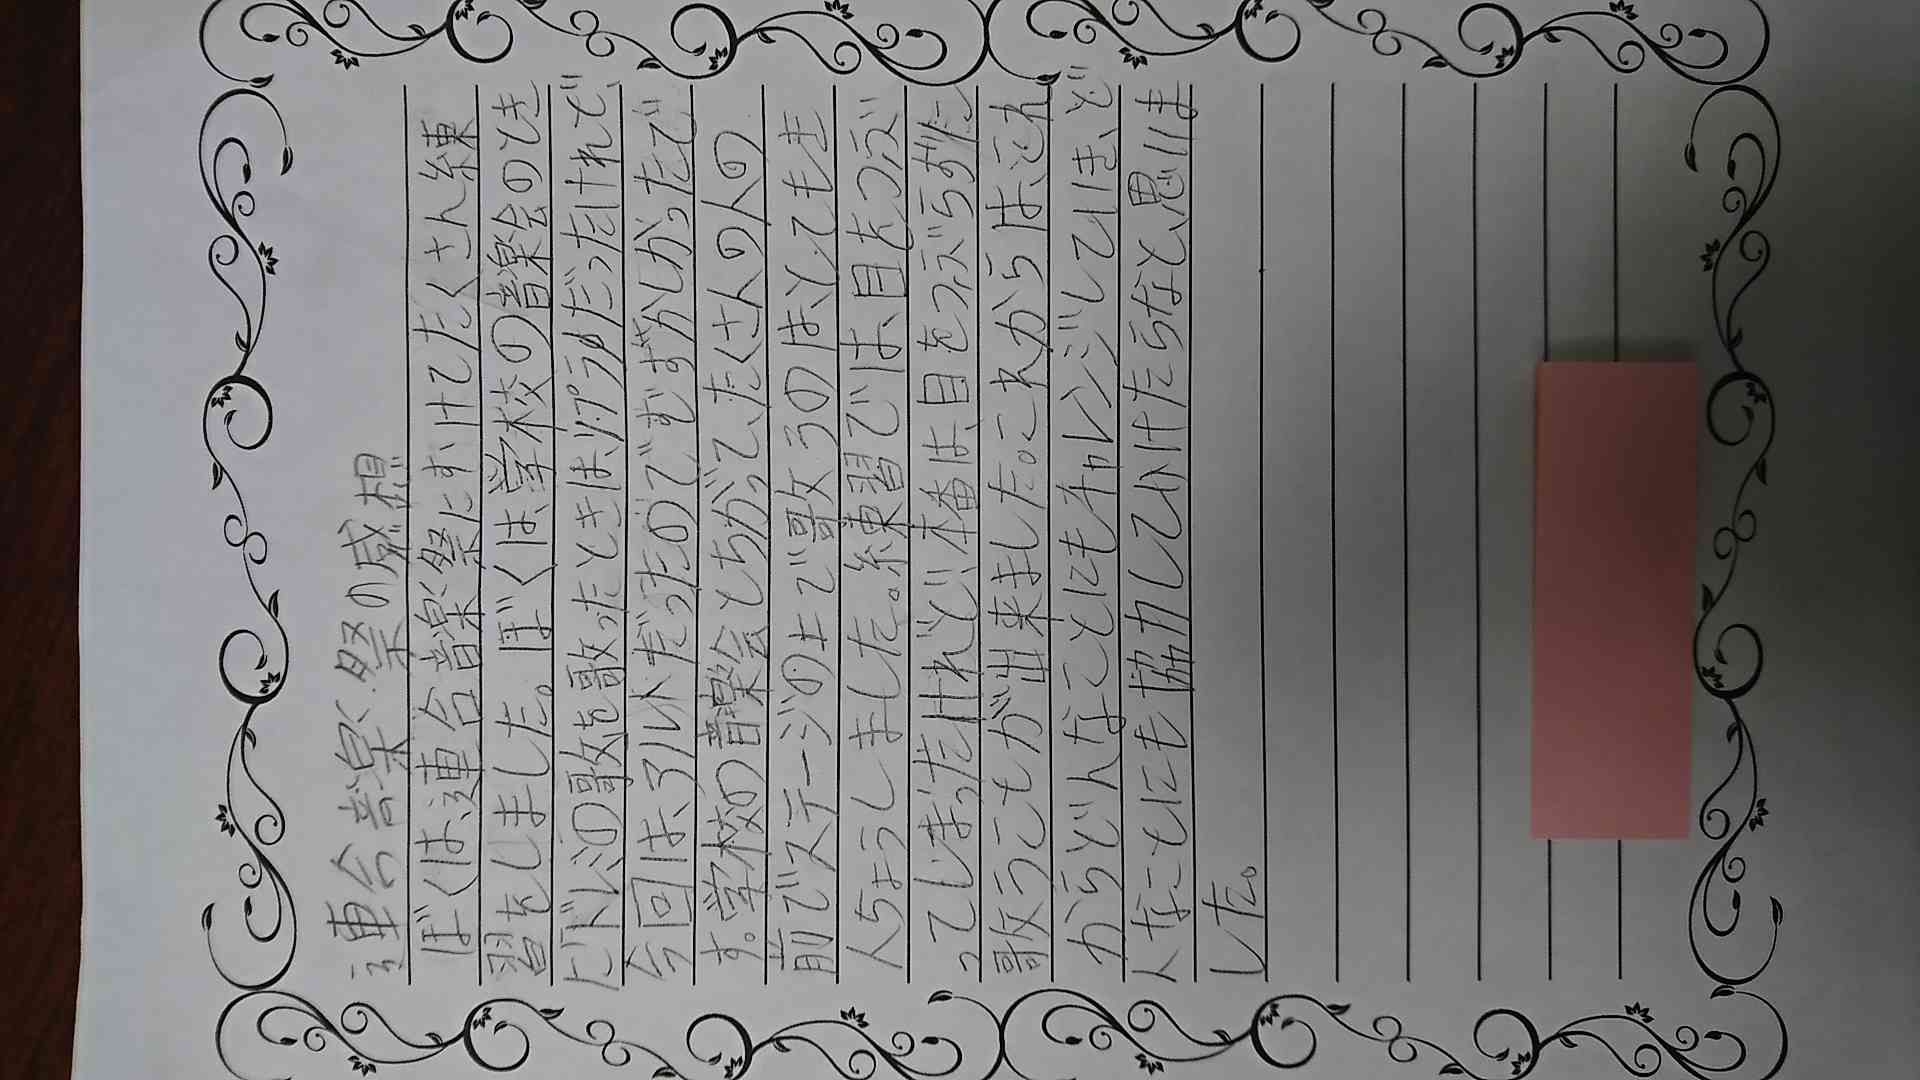 連合音楽祭の感想
ぼくは、連合音楽祭にむけてたくさん練
習をしました。ぼくは、学校の音楽会のとき
にドレミの歌を歌ったときは、リプラめだったけれで、
今回は、アルトだったのでむずかしかったで
す。学校の音楽会とちがって、たくさんの人の
前でステージの上で歌うのは、とてもき
んちょうしました。練習では、目をつぶ
ってしまったけれど、本番は、目をつぶらずに
歌うことが出来ました。これからは、これ
からどんなことにもチャレンジしていき、ど
んなことにも協力していけたらなと、思いま
した。